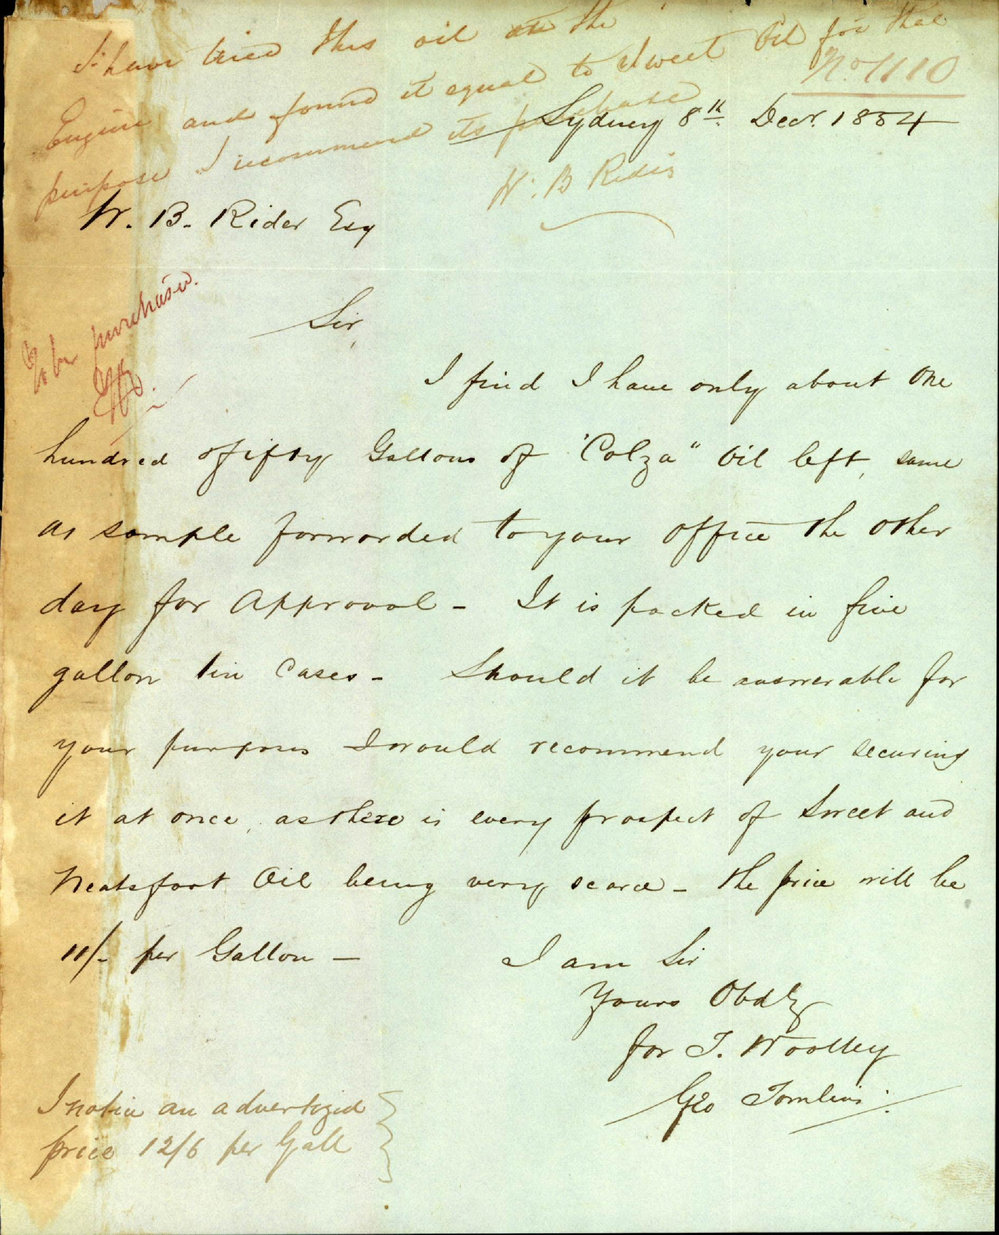 I have tried this oil on the
Engine and found it equal to Sweet Oil for that
purpose I recommend its purchase
W. B Rider
No 1110
Sydney 8th Decr. 1854
W. B. Rider Esq
To be purchased.
Sir,
I find I have only about One
hundred & fifty Gallons of "Colza" Oil left, same
as sample forwarded to your office the other
day for Approval - It is packed in five
gallon tin Cases - Should it be answerable for
your purposes I would recommend your securing
it at once, as there is every prospect of Sweet and
Neatsfoot Oil being very scarce - The price will be
11/- per Gallon -
I am Sir
Yours Obdly
for T. Woolley
Geo Tomlins.
I notice an advertized
price 12/6 per Gall